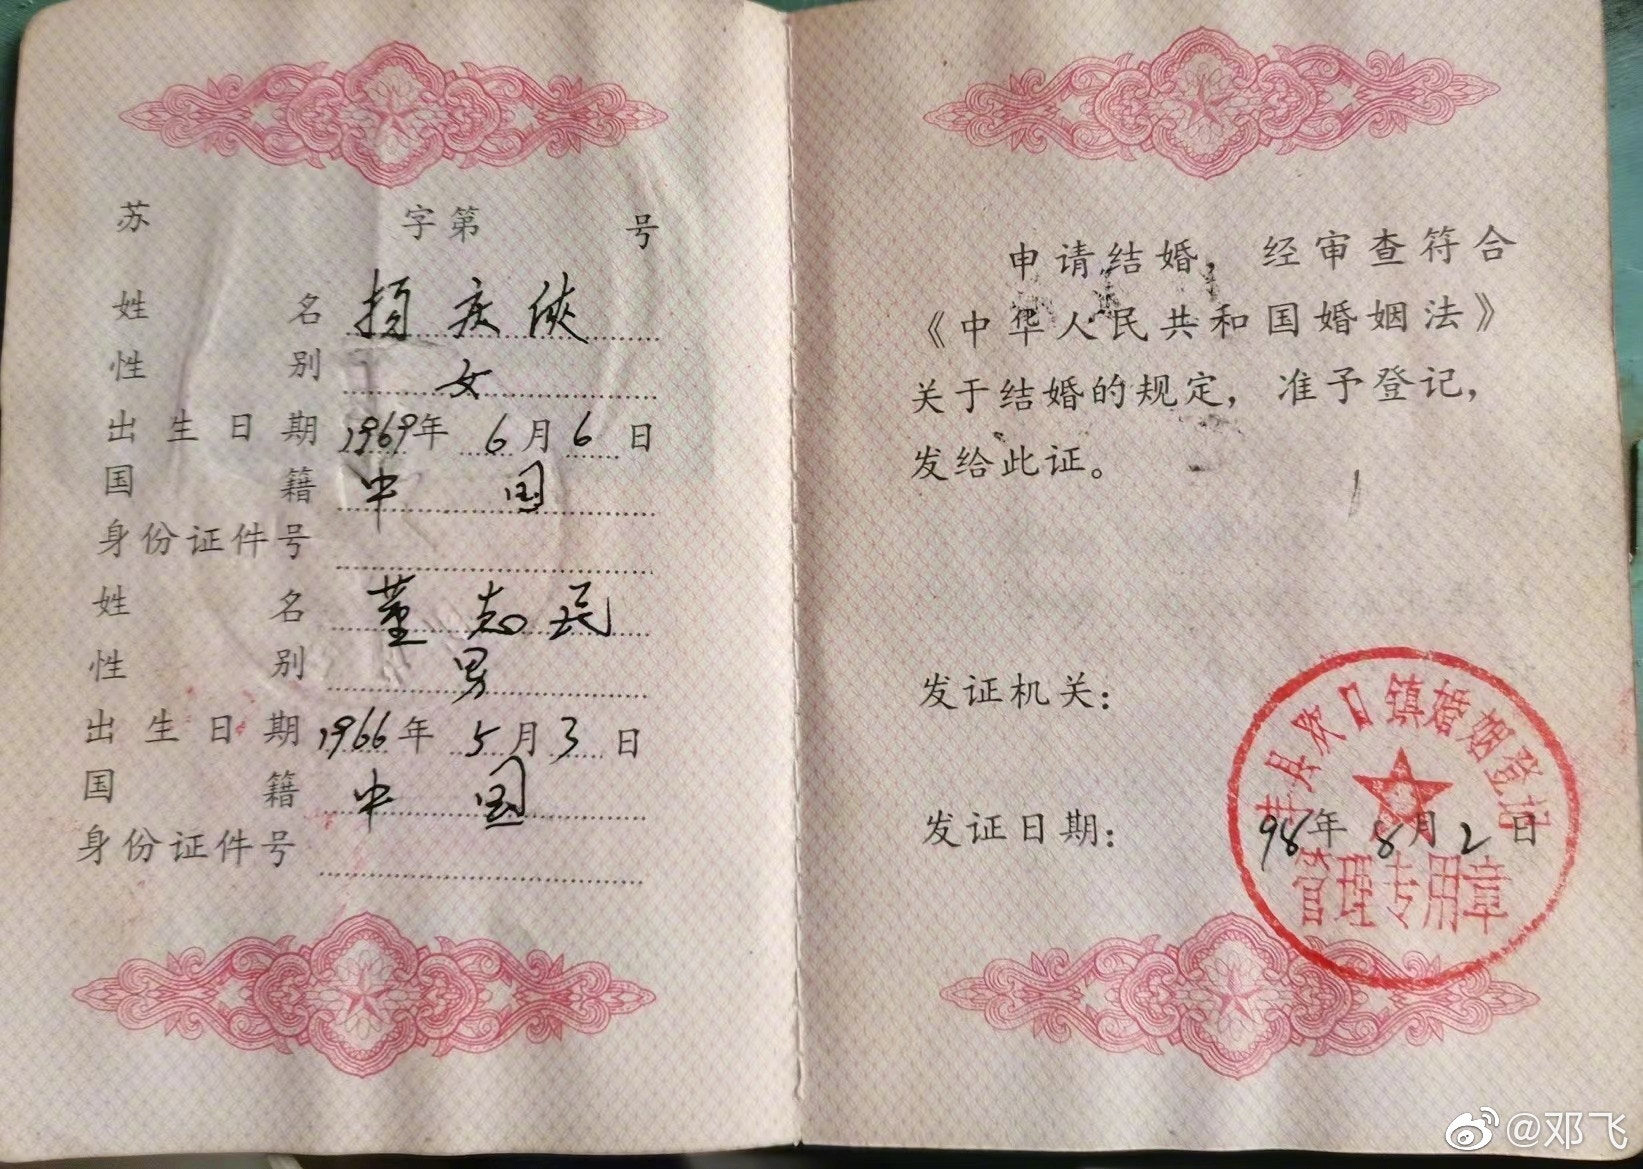 苏 字第 号
姓 名 杨庆侠
性 别 女
出生日期 1969年 6月6日
国 籍 中国
身份证件号
姓 名 董志民
性 别 男
出生日期 1966年 5月3日
国 籍 中国
身份证件号
申请结婚，经审查符合
《中华人民共和国婚姻法》
关于结婚的规定，准予登记，
发给此证。
发证机关：
县欢口镇婚姻登记
发证日期： 98年 8月2日
管理专用章
@邓飞